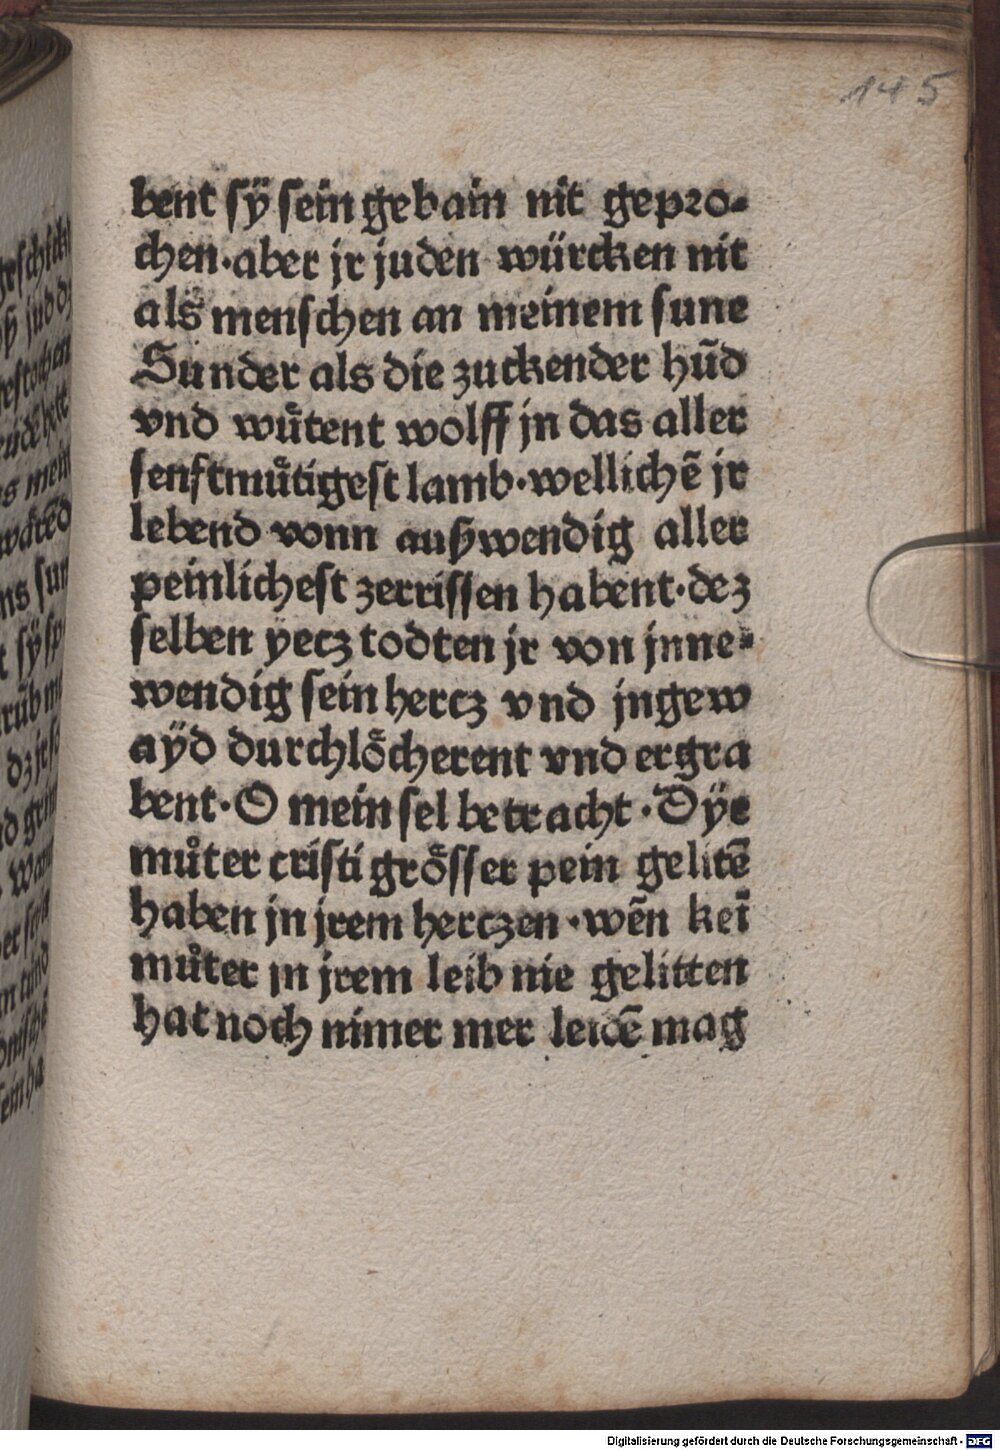 145
bent sÿ sein gebain nit gepro-
chen·aber jr juden würcken nit
als menschen an meinem sune
Sunder als die zuckender hūd
vnd wuͤtent wolff jn das aller
senftmuͤtigest lamb·wellichē jr
lebend vonn außwendig aller
peinlichest zerrissen habent·dez
selben yecz todten jr von jnne-
wendig sein hercz vnd jngew
aÿd durchloͤcherent vnd ergra
bent·O mein sel betracht·Dÿe
muͦter cristi groͤsser pein gelitē
haben jn jrem herczen·wēn keī
muͦter jn jrem leib nie gelitten
hat noch nimer mer leidē mag
Digitalisierung gefördert durch die Deutsche Forschungsgemeinschaft - DFG